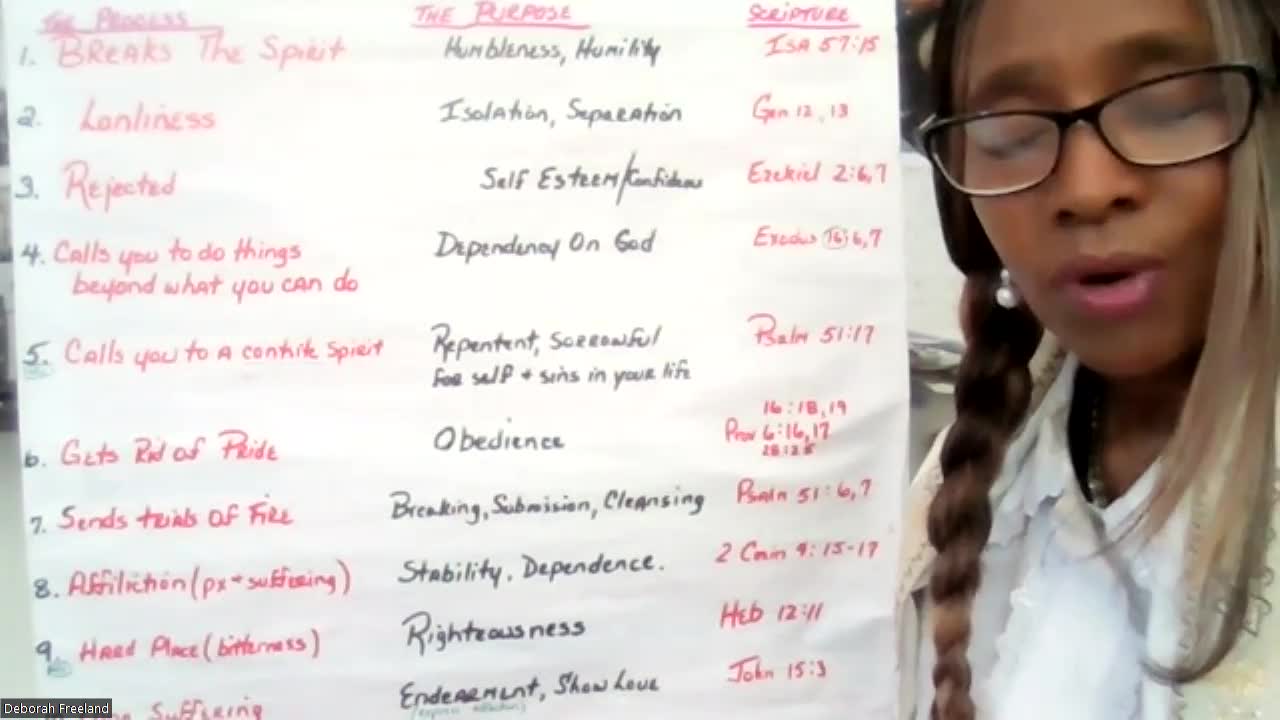 The Process The Purpose Scripture
1. Breaks The Spirit Humbleness, Humility ISA 57:15
2. Lonliness Isolation, Separation Gen 12, 13
3. Rejected Self Esteem/Confidence Ezekiel 2:6,7
4. Calls you to do things Dependency On God Exodus 16:6,7
beyond what you can do
5. Calls you to a contrite spirit Repentent, Sorrowful Psalm 51:17
For self + sins in your life
16:18,19
6. Gets Rid of Pride Obedience Prov 6:16,17
28:25
7. Sends trials of Fire Breaking, Submission, Cleansing Psalm 51:6,7
8. Affiliction (px + suffering) Stability, Dependence. 2 Corin 4:15-17
9. Hard Place (bitterness) Righteousness Heb 12:11
Suffering Endearment, Show Love John 15:3
Deborah Freeland